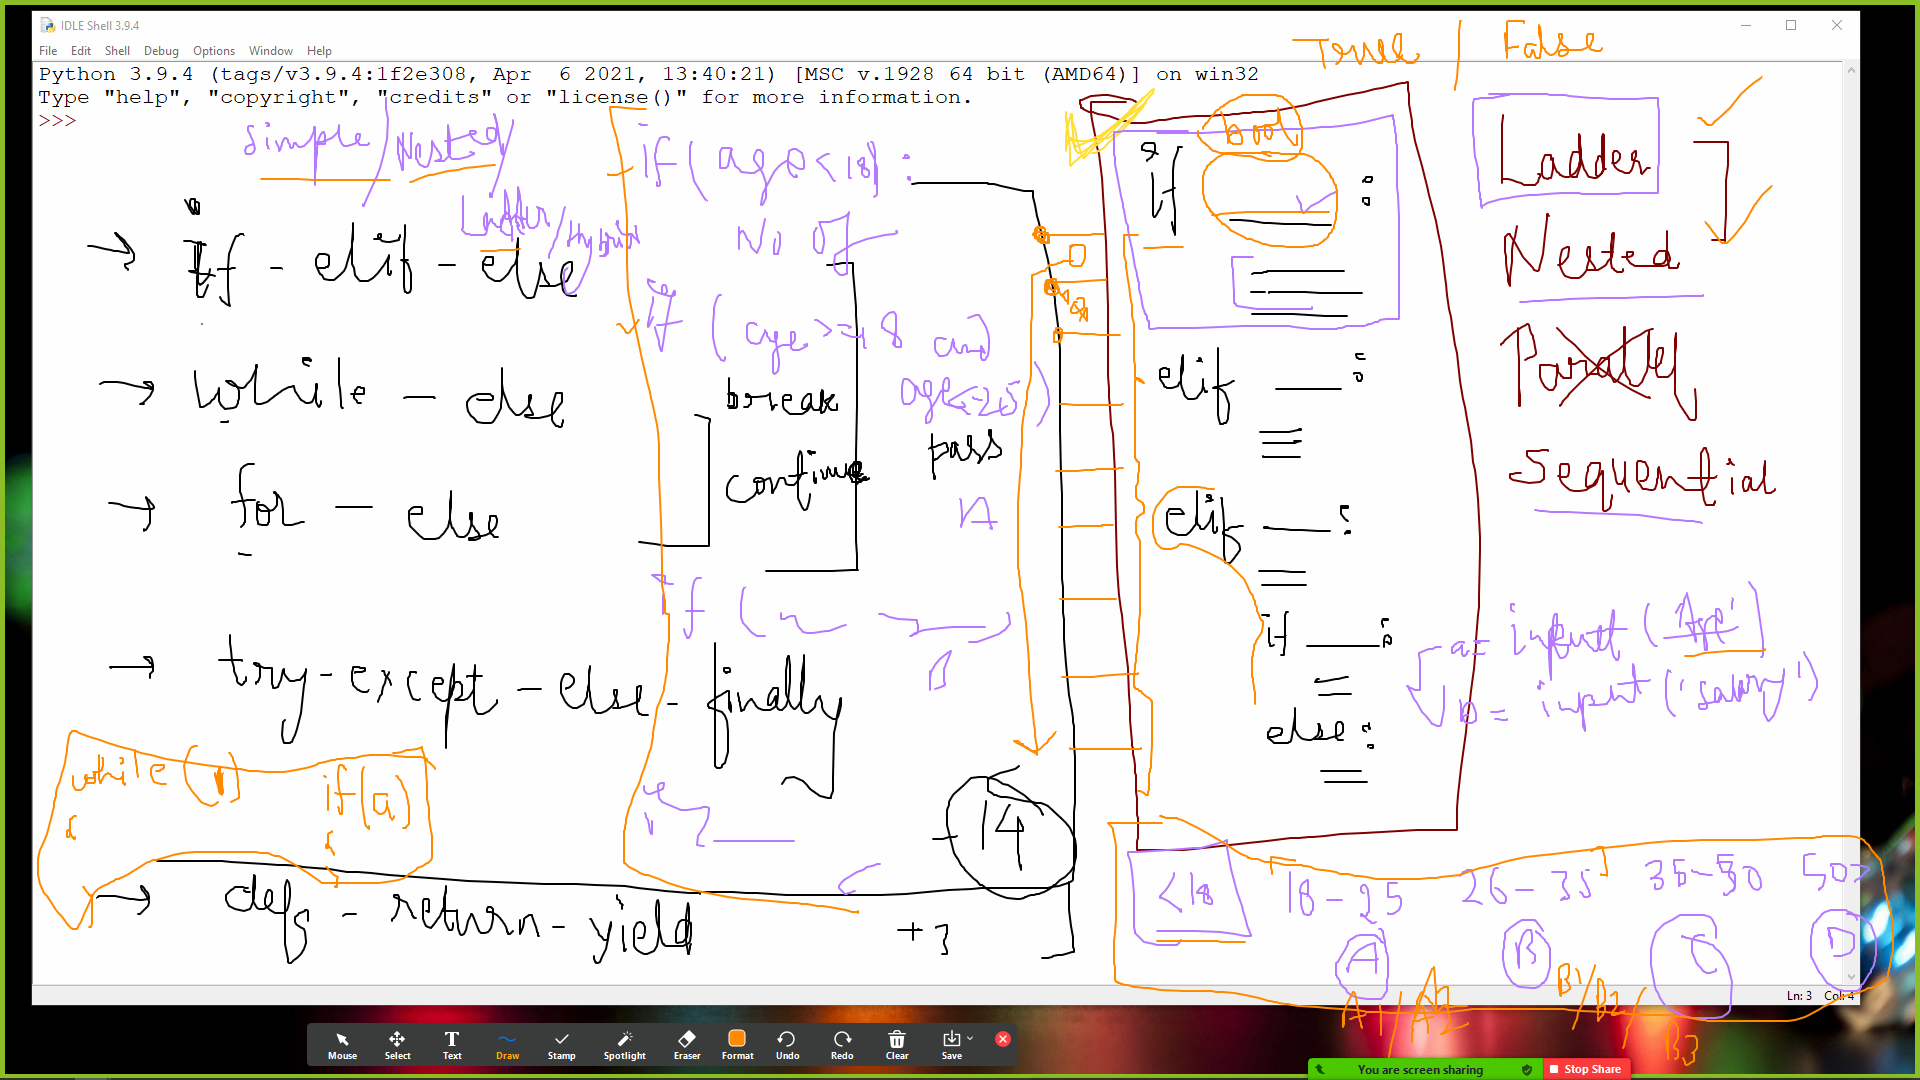 IDLE Shell 3.9.4
File Edit Shell Debug Options Window Help
Python 3.9.4 (tags/v3.9.4:1f2e308, Apr  6 2021, 13:40:21) [MSC v.1928 64 bit (AMD64)] on win32
Type "help", "copyright", "credits" or "license()" for more information.
>>>
True / False
Simple / Nested /
Ladder / Hybrid
→ if - elif - else
→ while - else
→ for - else
→ try - except - else - finally
while (1) if(a)
→ defs - return - yield
if (age < 18) :
No Of
if (age >= 18 and
age <= 25)
break
continue
pass
A
if (
B
14
+ 3
bool
if :
elif :
elif :
if :
else :
Ladder
Nested
Parallel
Sequential
a = input ('Age')
b = input ('salary')
<18 18 - 25 26 - 35 36 - 50 50>
A B C D
A1/A2 B1/B2/B3
Ln: 3 Col: 4
Mouse Select Text Draw Stamp Spotlight Eraser Format Undo Redo Clear Save
You are screen sharing Stop Share